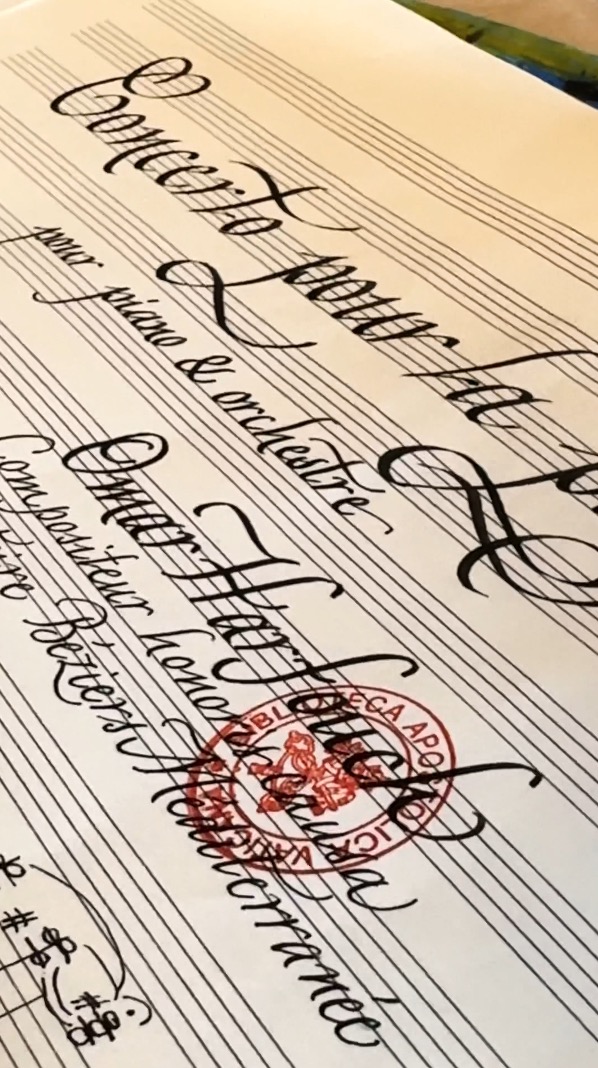 Concerto pour la
pour piano & orchestre
Omar Harfouch
Compositeur honoris causa
Béziers Méditerranée
BIBLIOTECA APOSTOLICA VATICANA